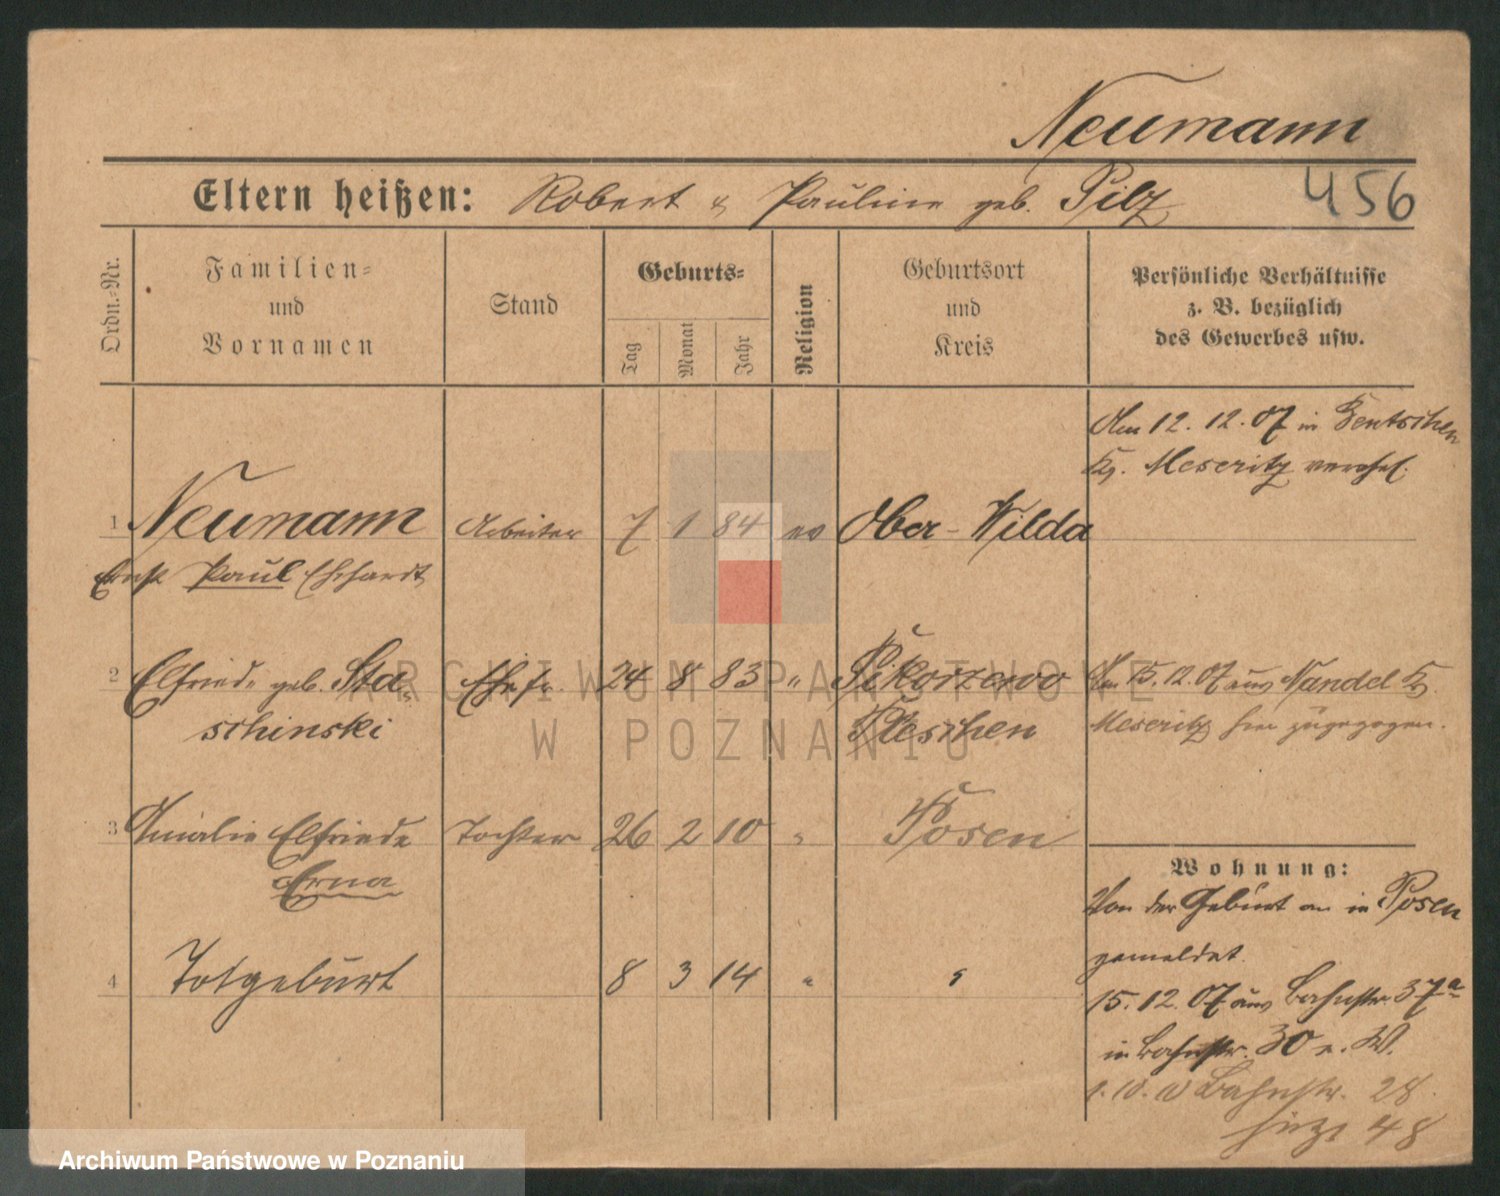 Neumann
Eltern heißen: Robert & Pauline geb. Pilz 456
Ordn.=Nr.
Familien=
und
Vornamen
Stand
Geburts=
Tag
Monat
Jahr
Religion
Geburtsort
und
Kreis
Persönliche Verhältnisse
z. B. bezüglich
des Gewerbes usw.
Am 12. 12. 07 in Bentschen
Kr. Meseritz verehel.
1 Neumann Arbeiter 7 1 84 ev Ober-Wilda
Ernst Paul Ehrhardt
2 Elfriede geb. Sta= Ehefr. 24 8 83 " Sikorzewo Am 15. 12. 07 aus Nandel Kr.
schinski Pleschen Meseritz hier zugezogen.
3 Amalie Elfriede Tochter 26 2 10 " Posen
Erna
Wohnung:
Von der Geburt an in Posen
gemeldet.
4 Totgeburt 8 3 14 " "
15. 12. 07 aus Bahnstr. 37a
in Bahnstr. 30 e. W.
Bahnstr. 28
jetzt 48
ARCHIWUM PAŃSTWOWE
W POZNANIU
Archiwum Państwowe w Poznaniu